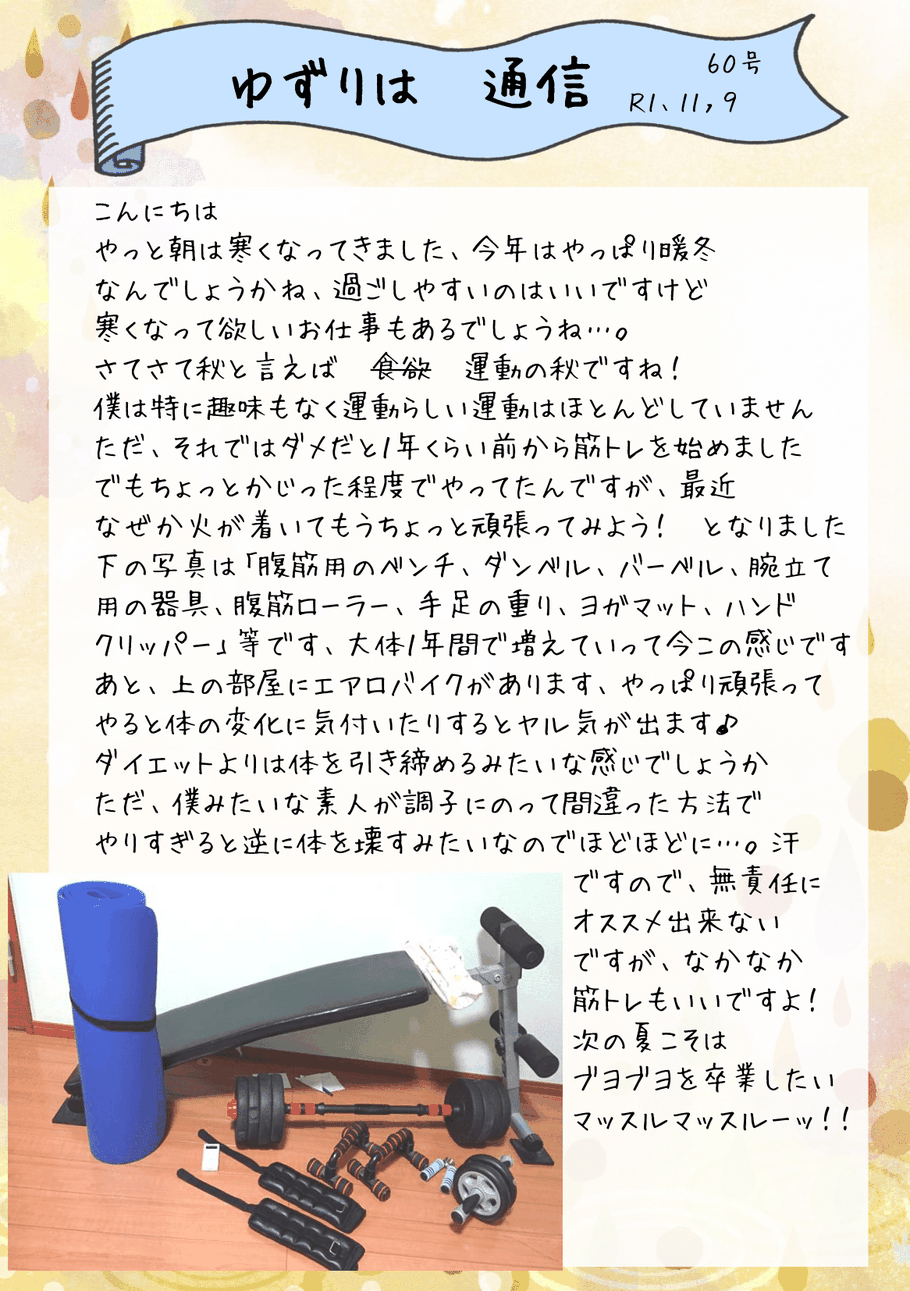 ゆずりは 通信
60号
R1、11,9
こんにちは
やっと朝は寒くなってきました、今年はやっぱり暖冬
なんでしょうかね、過ごしやすいのはいいですけど
寒くなって欲しいお仕事もあるでしょうね…。
さてさて秋と言えば 食欲 運動の秋ですね!
僕は特に趣味もなく運動らしい運動はほとんどしていません
ただ、それではダメだと1年くらい前から筋トレを始めました
でもちょっとかじった程度でやってたんですが、最近
なぜか火が着いてもうちょっと頑張ってみよう! となりました
下の写真は「腹筋用のベンチ、ダンベル、バーベル、腕立て
用の器具、腹筋ローラー、手足の重り、ヨガマット、ハンド
クリッパー」等です、大体1年間で増えていって今この感じです
あと、上の部屋にエアロバイクがあります、やっぱり頑張って
やると体の変化に気付いたりするとヤル気が出ます♪
ダイエットよりは体を引き締めるみたいな感じでしょうか
ただ、僕みたいな素人が調子にのって間違った方法で
やりすぎると逆に体を壊すみたいなのでほどほどに…。汗
ですので、無責任に
オススメ出来ない
ですが、なかなか
筋トレもいいですよ!
次の夏こそは
ブヨブヨを卒業したい
マッスルマッスルーッ!!